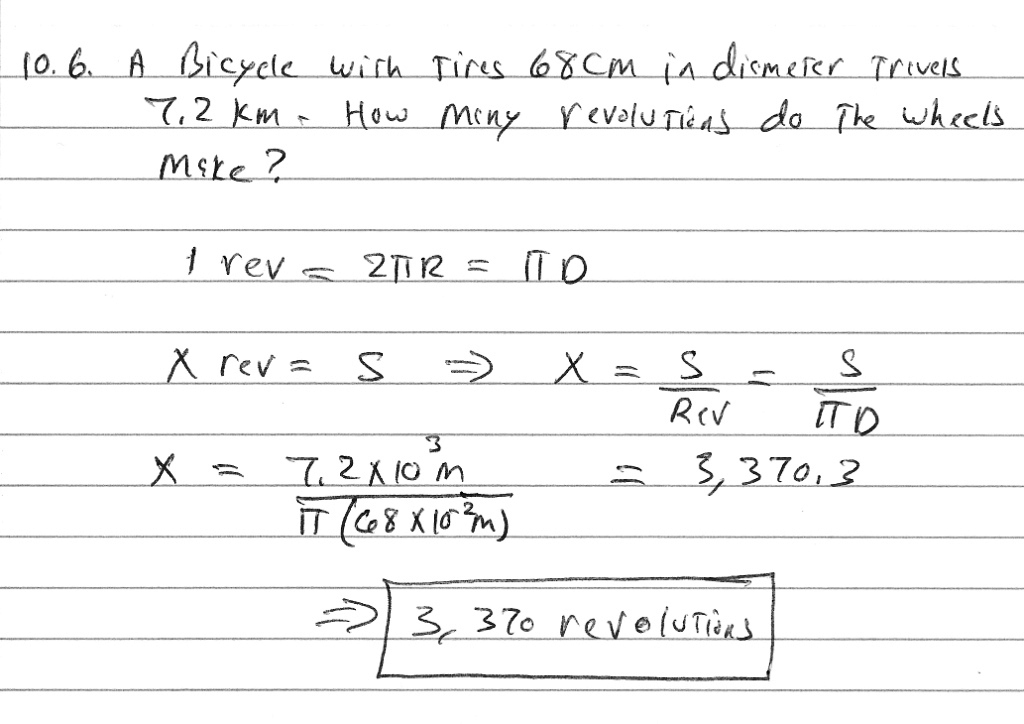 10.6. A Bicycle with Tires 68cm in diameter Travels
7.2 km. How Many revolutions do The wheels
Make?
1 rev = 2πR = πD
X rev = S ⇒ X = S/Rev = S/πD
X = 7.2 X 10³ m / π (68 X 10⁻² m) = 3,370.3
⇒ 3,370 revolutions